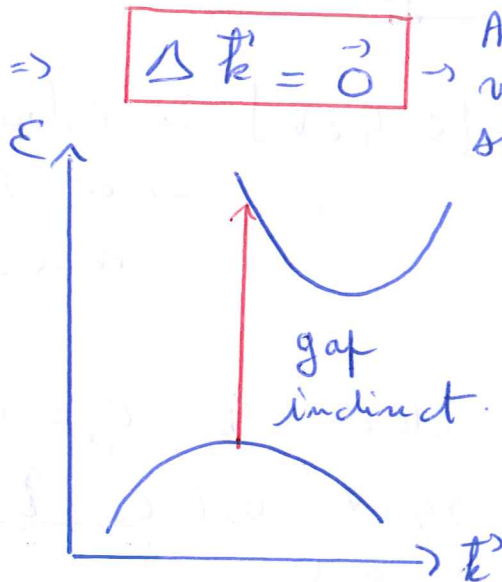 => Δ k⃗ = 0⃗ →
ε
gap
indirect.
k⃗